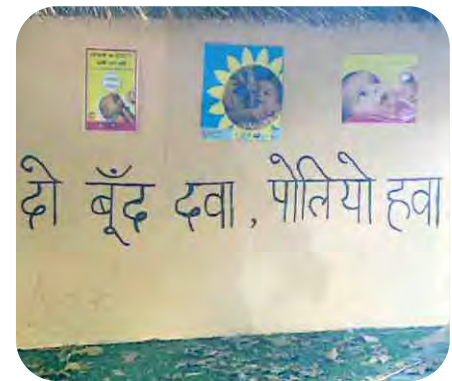 दो बूँद दवा, पोलियो हवा